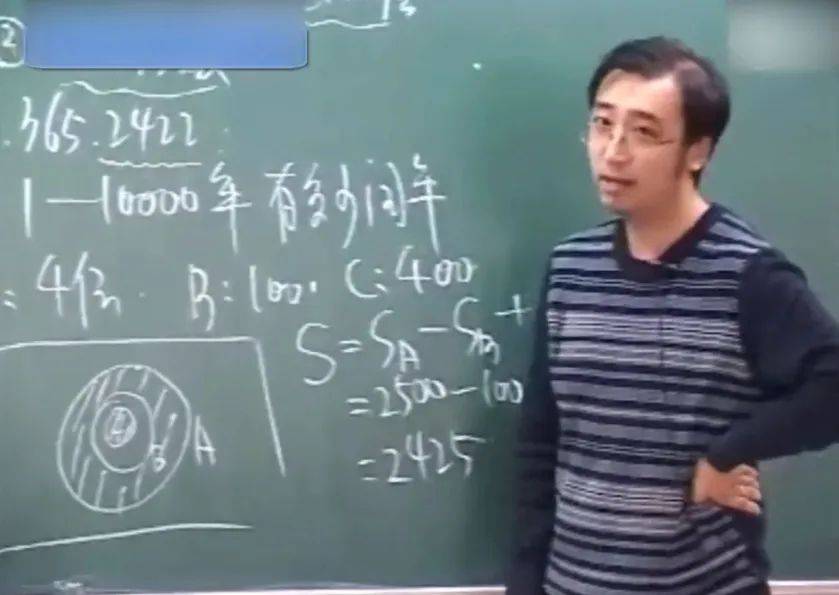 2
.365.2422.
1—10000年 有多少闰年
=4倍. B:100. C:400
S=S_A-S_B+
=2500-100
=2425
A
B